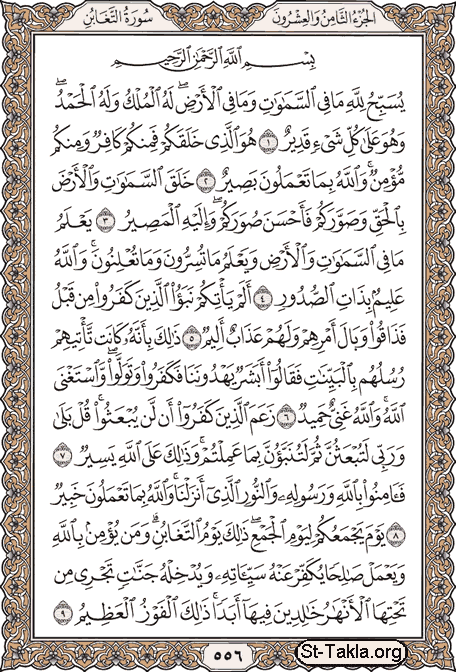 الجزء الثامن والعشرون سورة التغابن
بِسْمِ اللَّهِ الرَّحْمَٰنِ الرَّحِيمِ
يُسَبِّحُ لِلَّهِ مَا فِي السَّمَٰوَٰتِ وَمَا فِي الْأَرْضِ ۖ لَهُ الْمُلْكُ وَلَهُ الْحَمْدُ ۖ
وَهُوَ عَلَىٰ كُلِّ شَيْءٍ قَدِيرٌ ١ هُوَ الَّذِي خَلَقَكُمْ فَمِنكُمْ كَافِرٌ وَمِنكُم
مُّؤْمِنٌ ۚ وَاللَّهُ بِمَا تَعْمَلُونَ بَصِيرٌ ٢ خَلَقَ السَّمَٰوَٰتِ وَالْأَرْضَ
بِالْحَقِّ وَصَوَّرَكُمْ فَأَحْسَنَ صُوَرَكُمْ ۖ وَإِلَيْهِ الْمَصِيرُ ٣ يَعْلَمُ
مَا فِي السَّمَٰوَٰتِ وَالْأَرْضِ وَيَعْلَمُ مَا تُسِرُّونَ وَمَا تُعْلِنُونَ ۚ وَاللَّهُ
عَلِيمٌۢ بِذَاتِ الصُّدُورِ ٤ أَلَمْ يَأْتِكُمْ نَبَؤُا۟ الَّذِينَ كَفَرُوا۟ مِن قَبْلُ
فَذَاقُوا۟ وَبَالَ أَمْرِهِمْ وَلَهُمْ عَذَابٌ أَلِيمٌ ٥ ذَٰلِكَ بِأَنَّهُۥ كَانَت تَّأْتِيهِمْ
رُسُلُهُم بِالْبَيِّنَٰتِ فَقَالُوٓا۟ أَبَشَرٌ يَهْدُونَنَا فَكَفَرُوا۟ وَتَوَلَّوا۟ ۚ وَّاسْتَغْنَى
اللَّهُ ۚ وَاللَّهُ غَنِيٌّ حَمِيدٌ ٦ زَعَمَ الَّذِينَ كَفَرُوٓا۟ أَن لَّن يُبْعَثُوا۟ ۚ قُلْ بَلَىٰ
وَرَبِّي لَتُبْعَثُنَّ ثُمَّ لَتُنَبَّؤُنَّ بِمَا عَمِلْتُمْ ۚ وَذَٰلِكَ عَلَى اللَّهِ يَسِيرٌ ٧
فَـَٔامِنُوا۟ بِاللَّهِ وَرَسُولِهِۦ وَالنُّورِ الَّذِيٓ أَنزَلْنَا ۚ وَاللَّهُ بِمَا تَعْمَلُونَ خَبِيرٌ
٨ يَوْمَ يَجْمَعُكُمْ لِيَوْمِ الْجَمْعِ ۖ ذَٰلِكَ يَوْمُ التَّغَابُنِ ۗ وَمَن يُؤْمِنۢ بِاللَّهِ
وَيَعْمَلْ صَٰلِحًا يُكَفِّرْ عَنْهُ سَيِّـَٔاتِهِۦ وَيُدْخِلْهُ جَنَّٰتٍ تَجْرِي مِن
تَحْتِهَا الْأَنْهَٰرُ خَٰلِدِينَ فِيهَآ أَبَدًا ۚ ذَٰلِكَ الْفَوْزُ الْعَظِيمُ ٩
٥٥٦
St-Takla.org